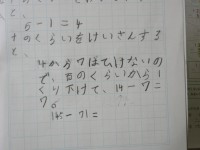 と、
5-1=4
十のくらいをけいさんする
と、
4から7はひけないの
で、百のくらいから1
くり下げて、14-7=
7。
145-71=